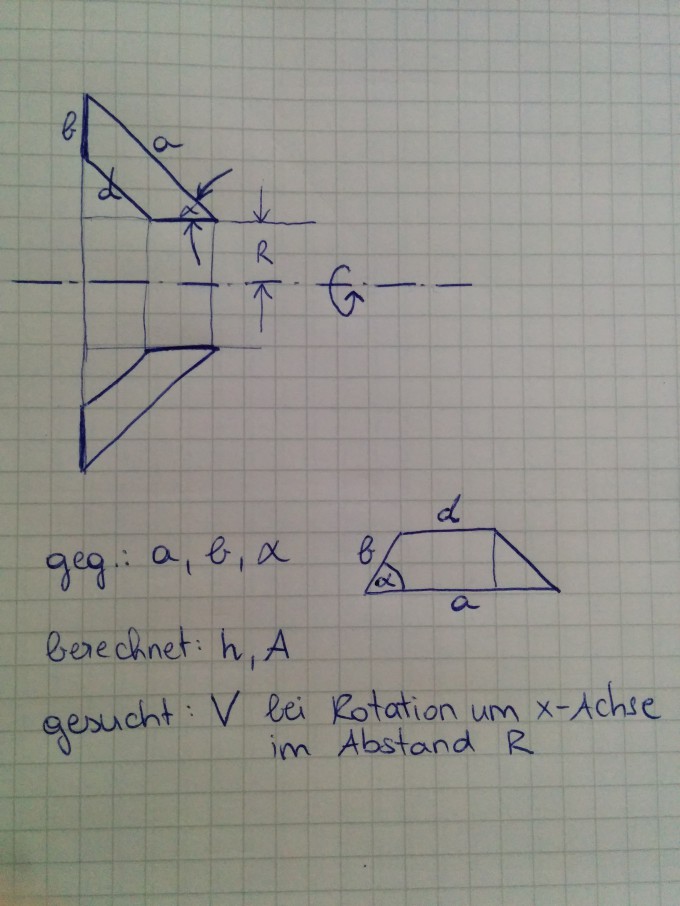 b
a
d
α
R
d
geg.: a, b, α
b
α
a
berechnet: h, A
gesucht: V bei Rotation um x-Achse
im Abstand R